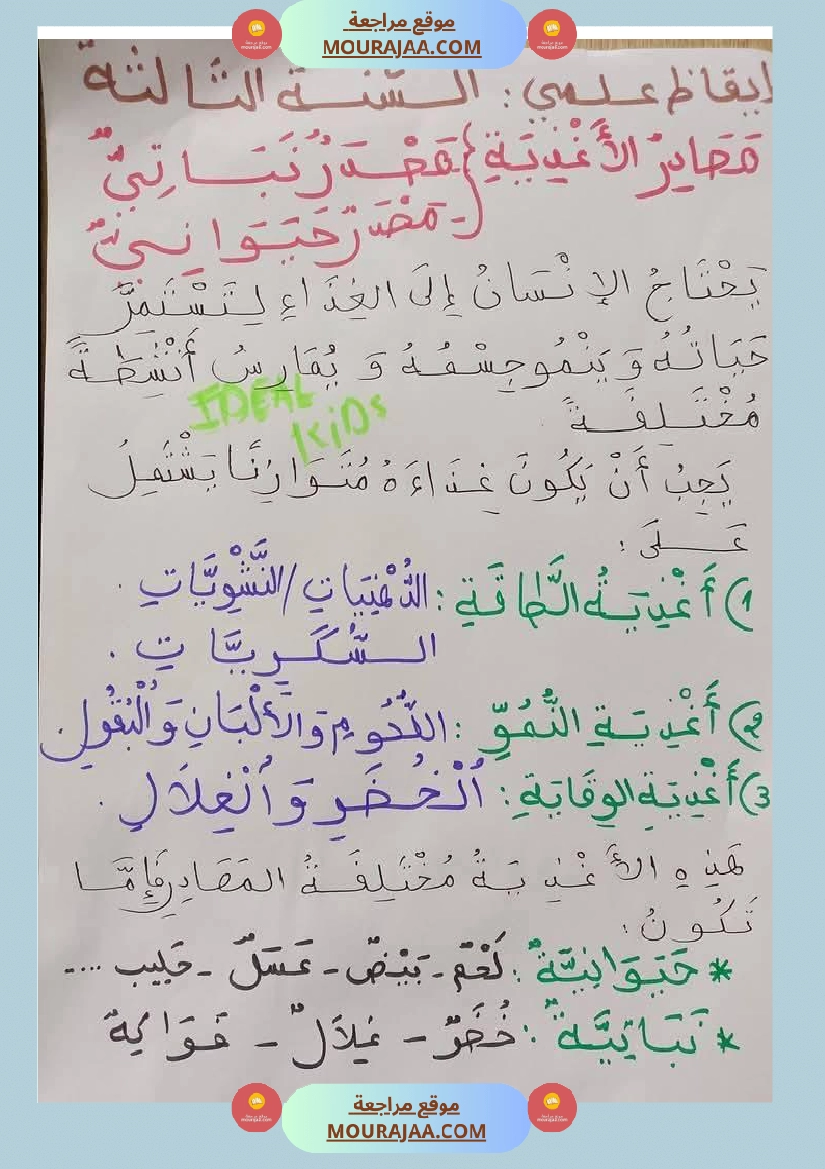 موقع مراجعة
MOURAJAA.COM
إيقاظ علمي : السَّنة الثَّالثة
مَصَادِرُ الأَغْذِيَةِ { مَصْدَرٌ نَبَاتِيٌّ
- مَصْدَرٌ حَيَوَانِيٌّ
يَحْتَاجُ الإِنْسَانُ إِلَى الغِذَاءِ لِتَسْتَمِرَّ
حَيَاتُهُ وَ يَنْمُو جِسْمُهُ وَ يُمَارِسُ أَنْشِطَةً
مُخْتَلِفَةً
IDEAL
KiDs
يَجِبُ أَنْ يَكُونَ غِذَاءَهُ مُتَوَازِنًا يَشْتَمِلُ
عَلَى :
1) أَغْذِيَةُ الطَّاقَةِ : الدُّهْنِيَاتِ / النَّشَوِيَّاتِ .
السُّكَّرِيَّاتِ .
2) أَغْذِيَةِ النُّمُوِّ : اللُّحُومِ وَالأَلْبَانِ وَالْبُقُولِ .
3) أَغْذِيَةِ الوِقَايَةِ : الْخُضَرِ وَ الْغِلَالِ .
هَذِهِ الأَغْذِيَةُ مُخْتَلِفَةُ المَصَادِرِ فَإِمَّا
تَكُونُ :
* حَيَوَانِيَّةٌ : لَحْمٌ - بَيْضٌ - عَسَلٌ - حَلِيب - ....
* نَبَاتِيَّةٌ : خُضَرٌ - غِلَالٌ - فَوَاكِهٌ
موقع مراجعة
MOURAJAA.COM